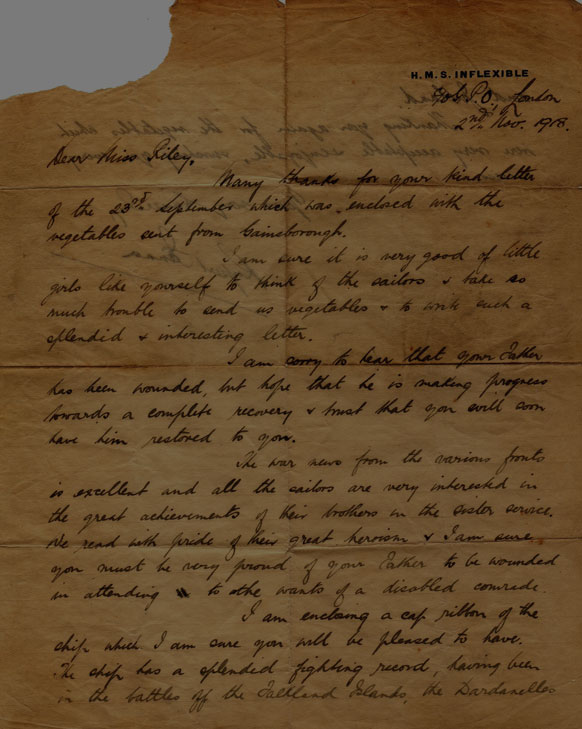 H.M.S. INFLEXIBLE
G.P.O. London
2nd Nov. 1918.
Dear Miss Riley,
Many thanks for your kind letter
of the 23rd September which was enclosed with the
vegetables sent from Gainsborough.
I am sure it is very good of little
girls like yourself to think of the sailors & take so
much trouble to send us vegetables & to write such a
splendid & interesting letter.
I am sorry to hear that your Father
has been wounded, but hope that he is making progress
towards a complete recovery & trust that you will soon
have him restored to you.
The war news from the various fronts
is excellent and all the sailors are very interested in
the great achievements of their brothers in the sister service.
We read with pride of their great heroism & I am sure
you must be very proud of your Father to be wounded
in attending to the wants of a disabled comrade.
I am enclosing a cap ribbon of the
ship which I am sure you will be pleased to have.
The ship has a splendid fighting record, having been
in the battles off the Falkland Islands, the Dardanelles